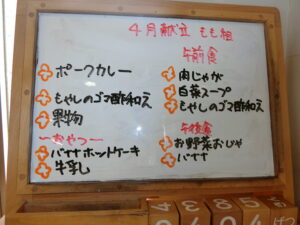 4月献立 もも組
ポークカレー
もやしのゴマ酢和え
果物
〜おやつ〜
バナナホットケーキ
牛乳
午前食
肉じゃが
白菜スープ
もやしのゴマ酢和え
午後食
お野菜おじや
バナナ